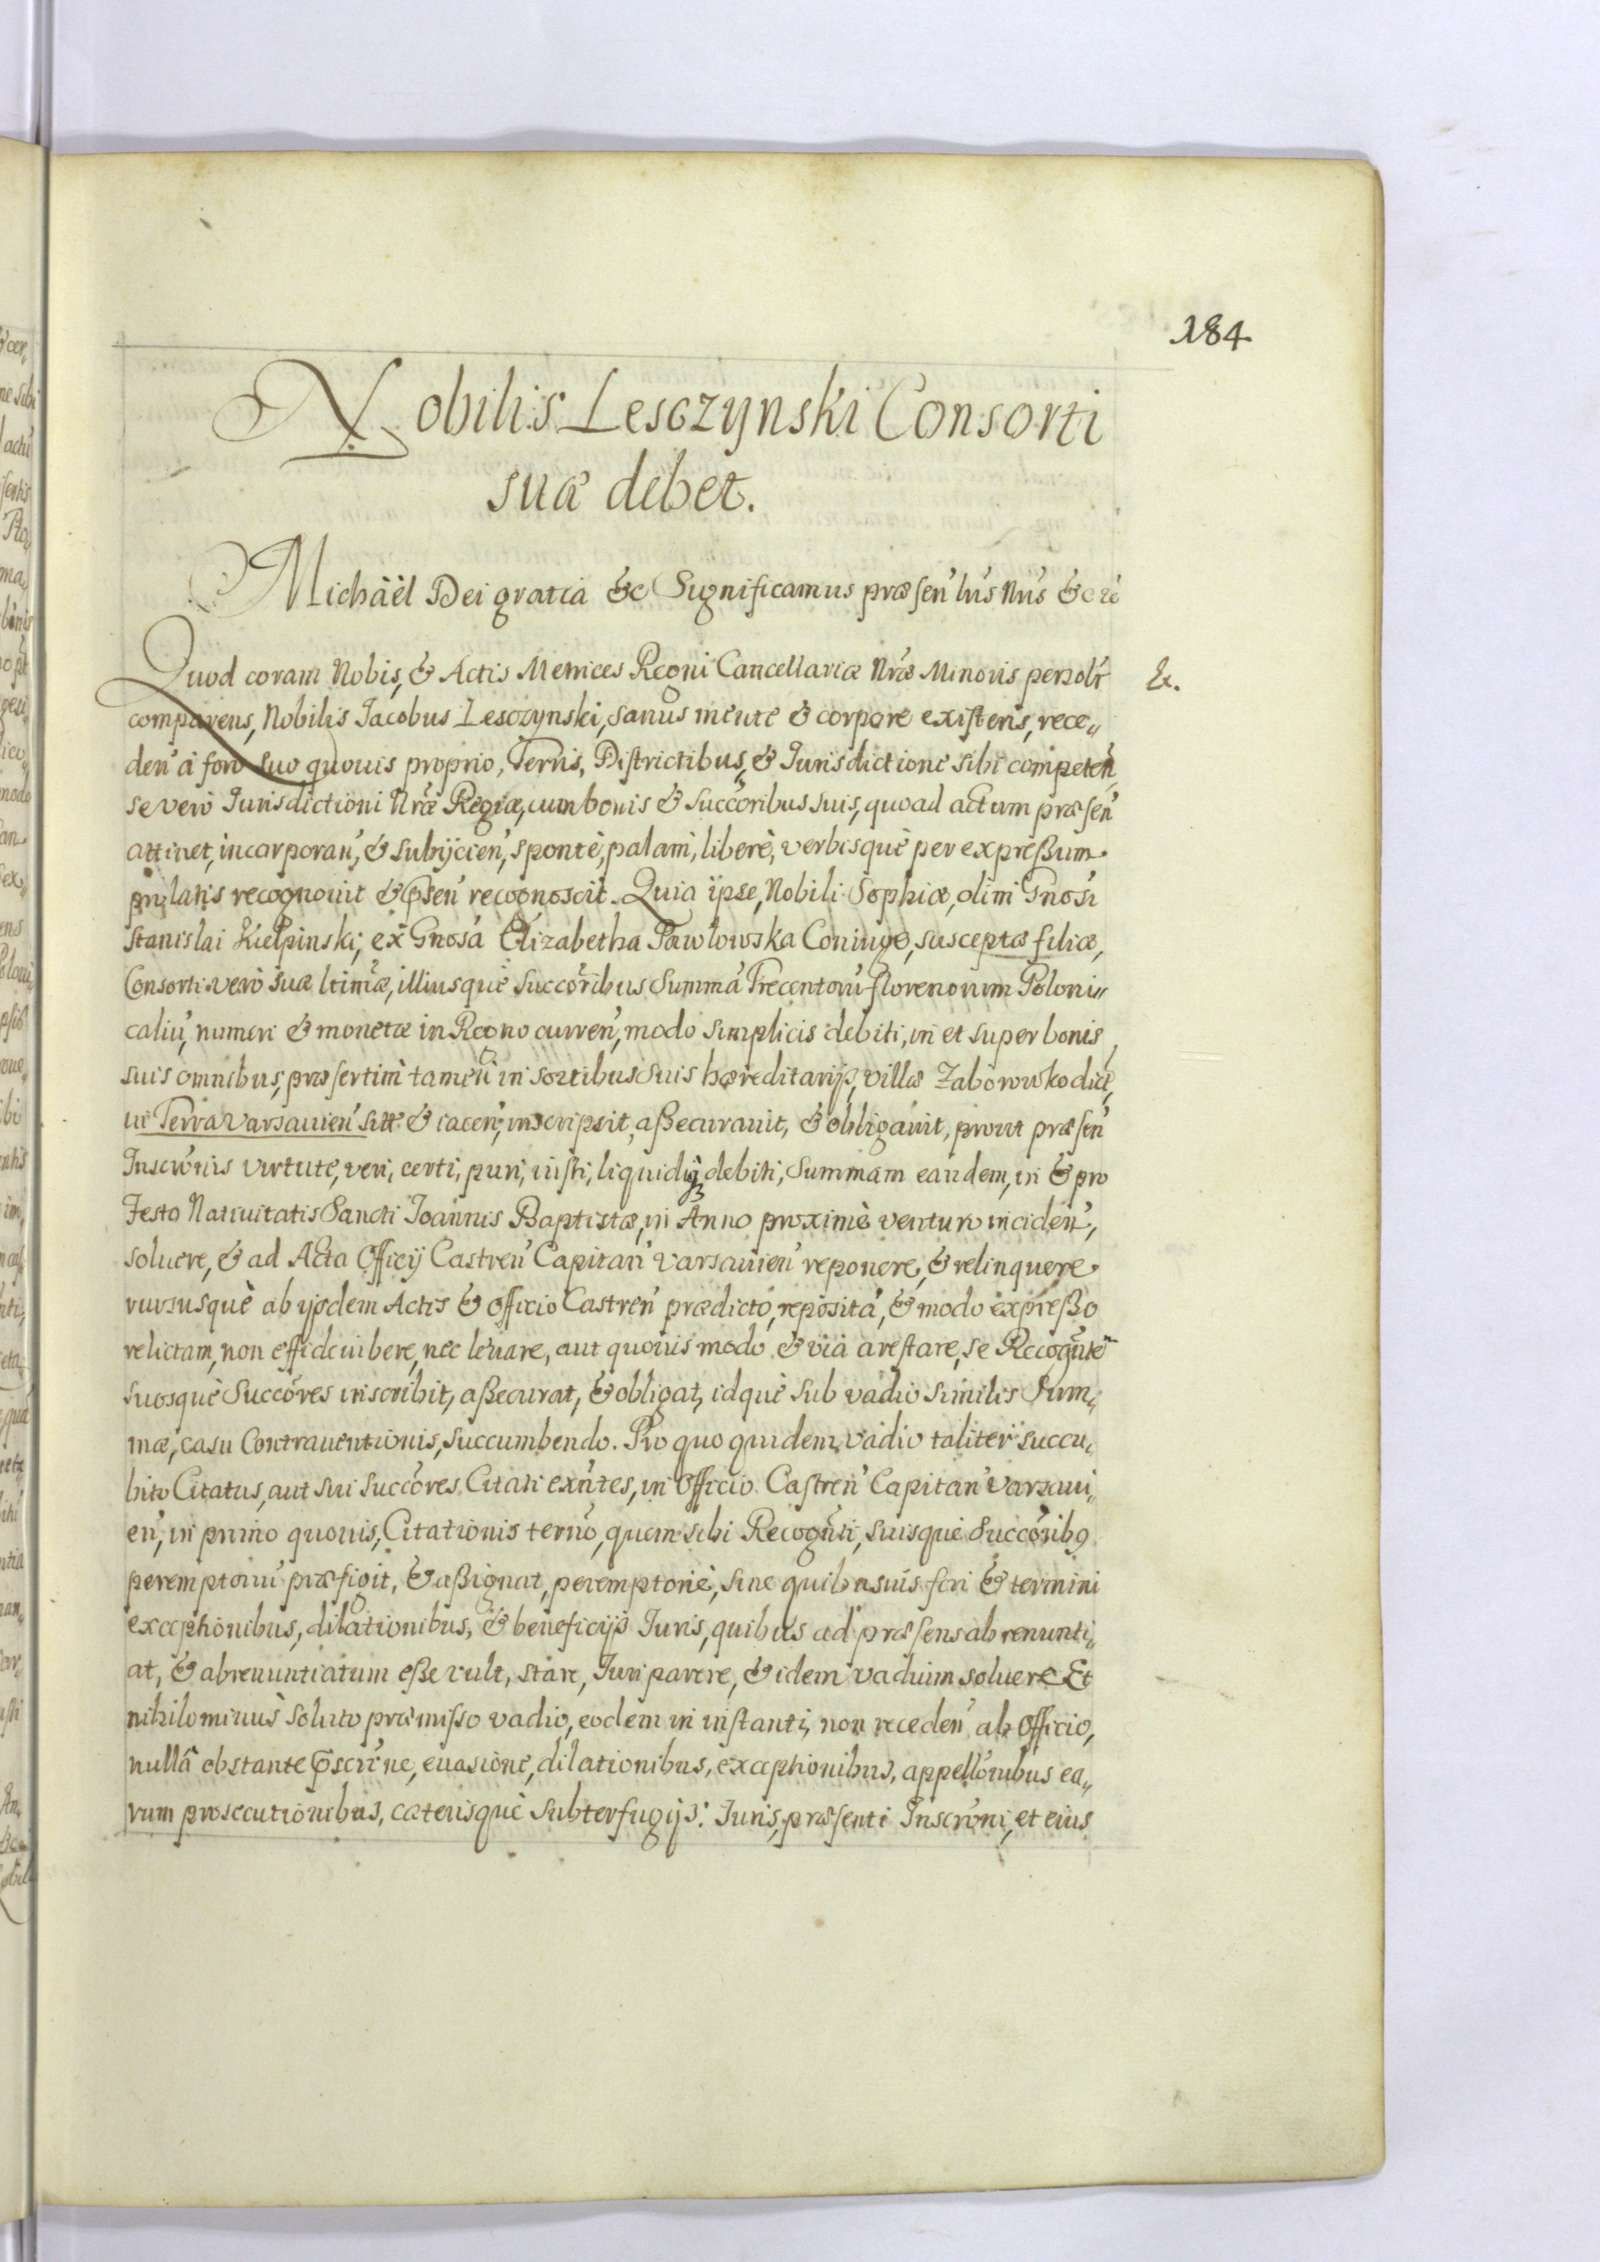 184
Nobilis Lesczynski Consorti
suæ debet.
Michaël Dei gratia &c Significamus præsen lus Nris &c
Quod coram Nobis, & Actis Metrices Regni Cancellariæ Nræ Minoris personlr
&.
comparens, Nobilis Jacobus Lesczynski, sanus mente & corpore existens, rece„
den à foro suo quouis proprio, Terris, Districtibus, & Jurisdictione sibi competen,
se vero Jurisdictioni Nræ Regiæ, cum bonis & succoribus suis, quoad actum præsen
attinet, incorporan, & subijcien, sponte, palam, libere, verbisquè per expreßum
prolatis recognouit & psen recognoscit. Quia ipse, Nobili Sophiæ, olim Gnosi
Stanislai Kielpinski, ex Gnosa Elizabetha Pawlowska Coniuge, susceptæ filiæ,
Consorti verò suæ ltimæ, illiusquè succoribus Summã Trecentoru florenorum Poloni„
caliu, numeri & monetæ in Regno curren, modo simplicis debiti, in et super bonis
suis omnibus, præsertim tamen in sortibus suis hæreditarijs, villæ Zaborowsko dict,
in Terra Varsauien sitt & iacen, inscripsit, aßecurauit, & obligauit, prout præsen
Inscronis virtute, veri, certi, puri, iusti, liquidiq debiti, Summam eandem, in & pro
Festo Natiuitatis Sancti Joannis Baptistæ, in Anno proximè venturo inciden,
soluere, & ad Acta Officij Castren Capitan Varsauien reponere, & relinquere
rursusquè ab ijsdem Actis & Officio Castren prædicto, reposità, & modo expreßo
relictam, non effidcuibere, nec leuare, aut quouis modo & via arestare, se Recognte
suosquè Succores inscribit, aßecurat, & obligat, idquè sub vadio similis Sum„
mæ, casu Contrauentionis, succumbendo. Pro quo quidem vadio taliter succu„
bito Citatus, aut sui succores Citati exntes, in Officio Castren Capitan Varsaui„
en, in primo quouis, Citationis terno, quem sibi Recognti, suisquè Succoribq
peremptoriu præfigit, & aßignat, peremptoriè, sine quibusuis fori & termini
exceptionibus, dilationibus, & beneficijs Juris, quibus ad præsens abrenunti„
at, & abrenuntiatum eße vult, stare, Juri parere, & idem vadium soluere Et
nihilominus soluto præmisso vadio, eodem in instanti, non receden ab Officio,
nullâ obstante pscrne, euasione, dilationibus, exceptionibus, appellonibus ea„
rum prosecutionibus, cæterisquè subterfugijs Juris, præsenti Inscroni, et eius